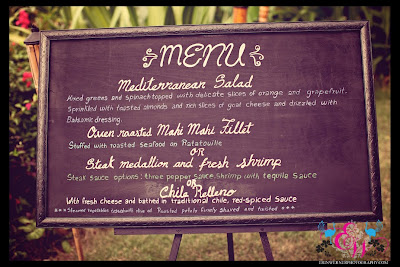 MENU
Mediterranean Salad
Mixed greens and spinach topped with delicate slices of orange and grapefruit.
Sprinkled with toasted almonds and rich slices of goat cheese and drizzled with
Balsamic dressing.
Oven roasted Mahi Mahi Fillet
Stuffed with roasted seafood on Ratatouille
OR
Steak medallion and fresh shrimp
Steak sauce options: three pepper sauce. Shrimp with tequila sauce
OR
Chile Relleno
With fresh cheese and bathed in traditional chile, red-spiced sauce
***Steamed vegetables Roasted potato finely shaved and twisted ***
ERINWERNERPHOTOGRAPHY.COM